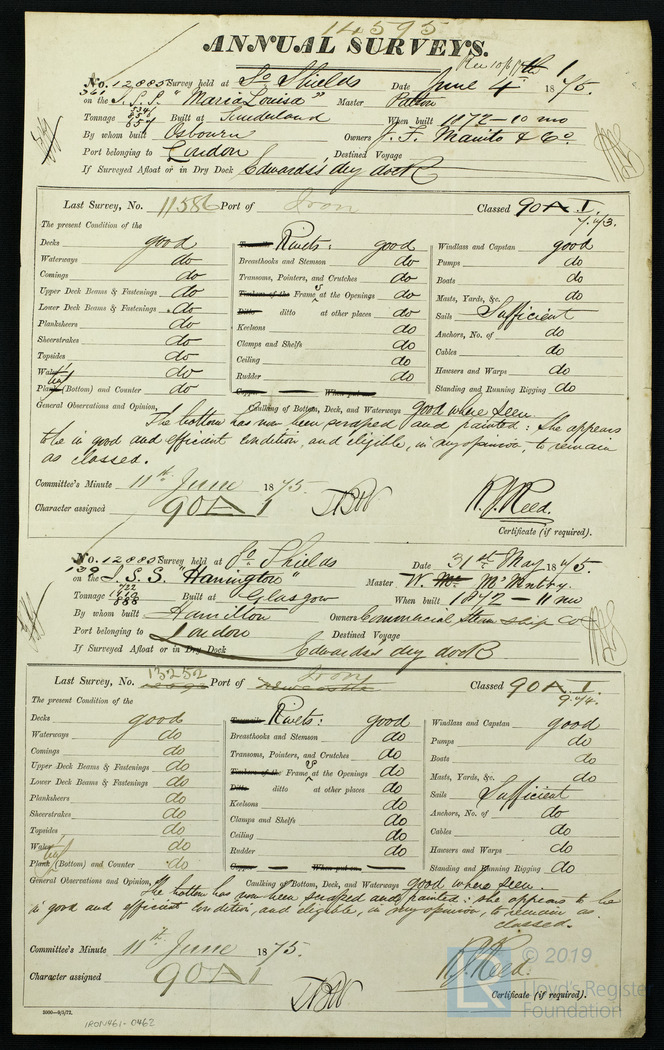 14595
ANNUAL SURVEYS.
Rec 10/6/75 1
No. 12885 Survey held at So Shields Date June 4th 1875.
361 on the S.S.S. "Maria Louisa" Master Patton
Tonnage 657 Built at Sunderland When built 1872-10 mo
By whom built Osbourn Owners J. F. Manito & Co
Port belonging to London, Destined Voyage
If Surveyed Afloat or in Dry Dock Edwards's dry dock
Last Survey, No. 11586 Port of Iron Classed 90 A 1.
The present Condition of the
Decks good Rivets: good Windlass and Capstan good
Waterways do Breasthooks and Stemson do Pumps do
Comings do Transoms, Pointers, and Crutches do Boats do
Upper Deck Beams & Fastenings do Timbers of the Frames at the Openings do Masts, Yards, &c. do
Lower Deck Beams & Fastenings do Ditto ditto at other places do Sails Sufficient
Planksheers do Keelsons do Anchors, No. of do
Sheerstrakes do Clamps and Shelfs do Cables do
Topsides do Ceiling do Hawsers and Warps do
Wales do Rudder do Standing and Running Rigging do
Plank (Bottom) and Counter do Copper When put on
General Observations and Opinion, Caulking of Bottom, Deck, and Waterways good where seen
The bottom has now been scraped and painted: She appears
to be in good and efficient condition, and eligible, in my opinion, to remain
as classed.
Committee's Minute 11th June 1875.
Character assigned 90 A 1 R. J. Reed.
Certificate (if required).
No. 12885 Survey held at So Shields Date 31st May 1875.
139 on the S.S.S. "Harrington" Master W. McEntry.
Tonnage 722 888 Built at Glasgow When built 1872-11 mo
By whom built Hamilton Owners Commercial Stm Ship Co
Port belonging to London Destined Voyage
If Surveyed Afloat or in Dry Dock Edwards's dry dock
Last Survey, No. 13252 Port of Iron Classed 90 A 1.
9.74.
The present Condition of the
Decks good Rivets: good Windlass and Capstan good
Waterways do Breasthooks and Stemson do Pumps do
Comings do Transoms, Pointers, and Crutches do Boats do
Upper Deck Beams & Fastenings do Timbers of the Frames at the Openings do Masts, Yards, &c. do
Lower Deck Beams & Fastenings do Ditto ditto at other places do Sails Sufficient
Planksheers do Keelsons do Anchors, No. of do
Sheerstrakes do Clamps and Shelfs do Cables do
Topsides do Ceiling do Hawsers and Warps do
Wales do Rudder do Standing and Running Rigging do
Plank (Bottom) and Counter do Copper When put on
General Observations and Opinion, Caulking of Bottom, Deck, and Waterways good where seen.
The bottom has now been scraped and painted: she appears to be
in good and efficient condition, and eligible, in my opinion, to remain as
classed.
Committee's Minute 11th June 1875.
Character assigned 90 A 1 R. J. Reed.
Certificate (if required).
3000-9/5/72.
IRON461-0462
LR
© 2019
Lloyd's Register
Foundation